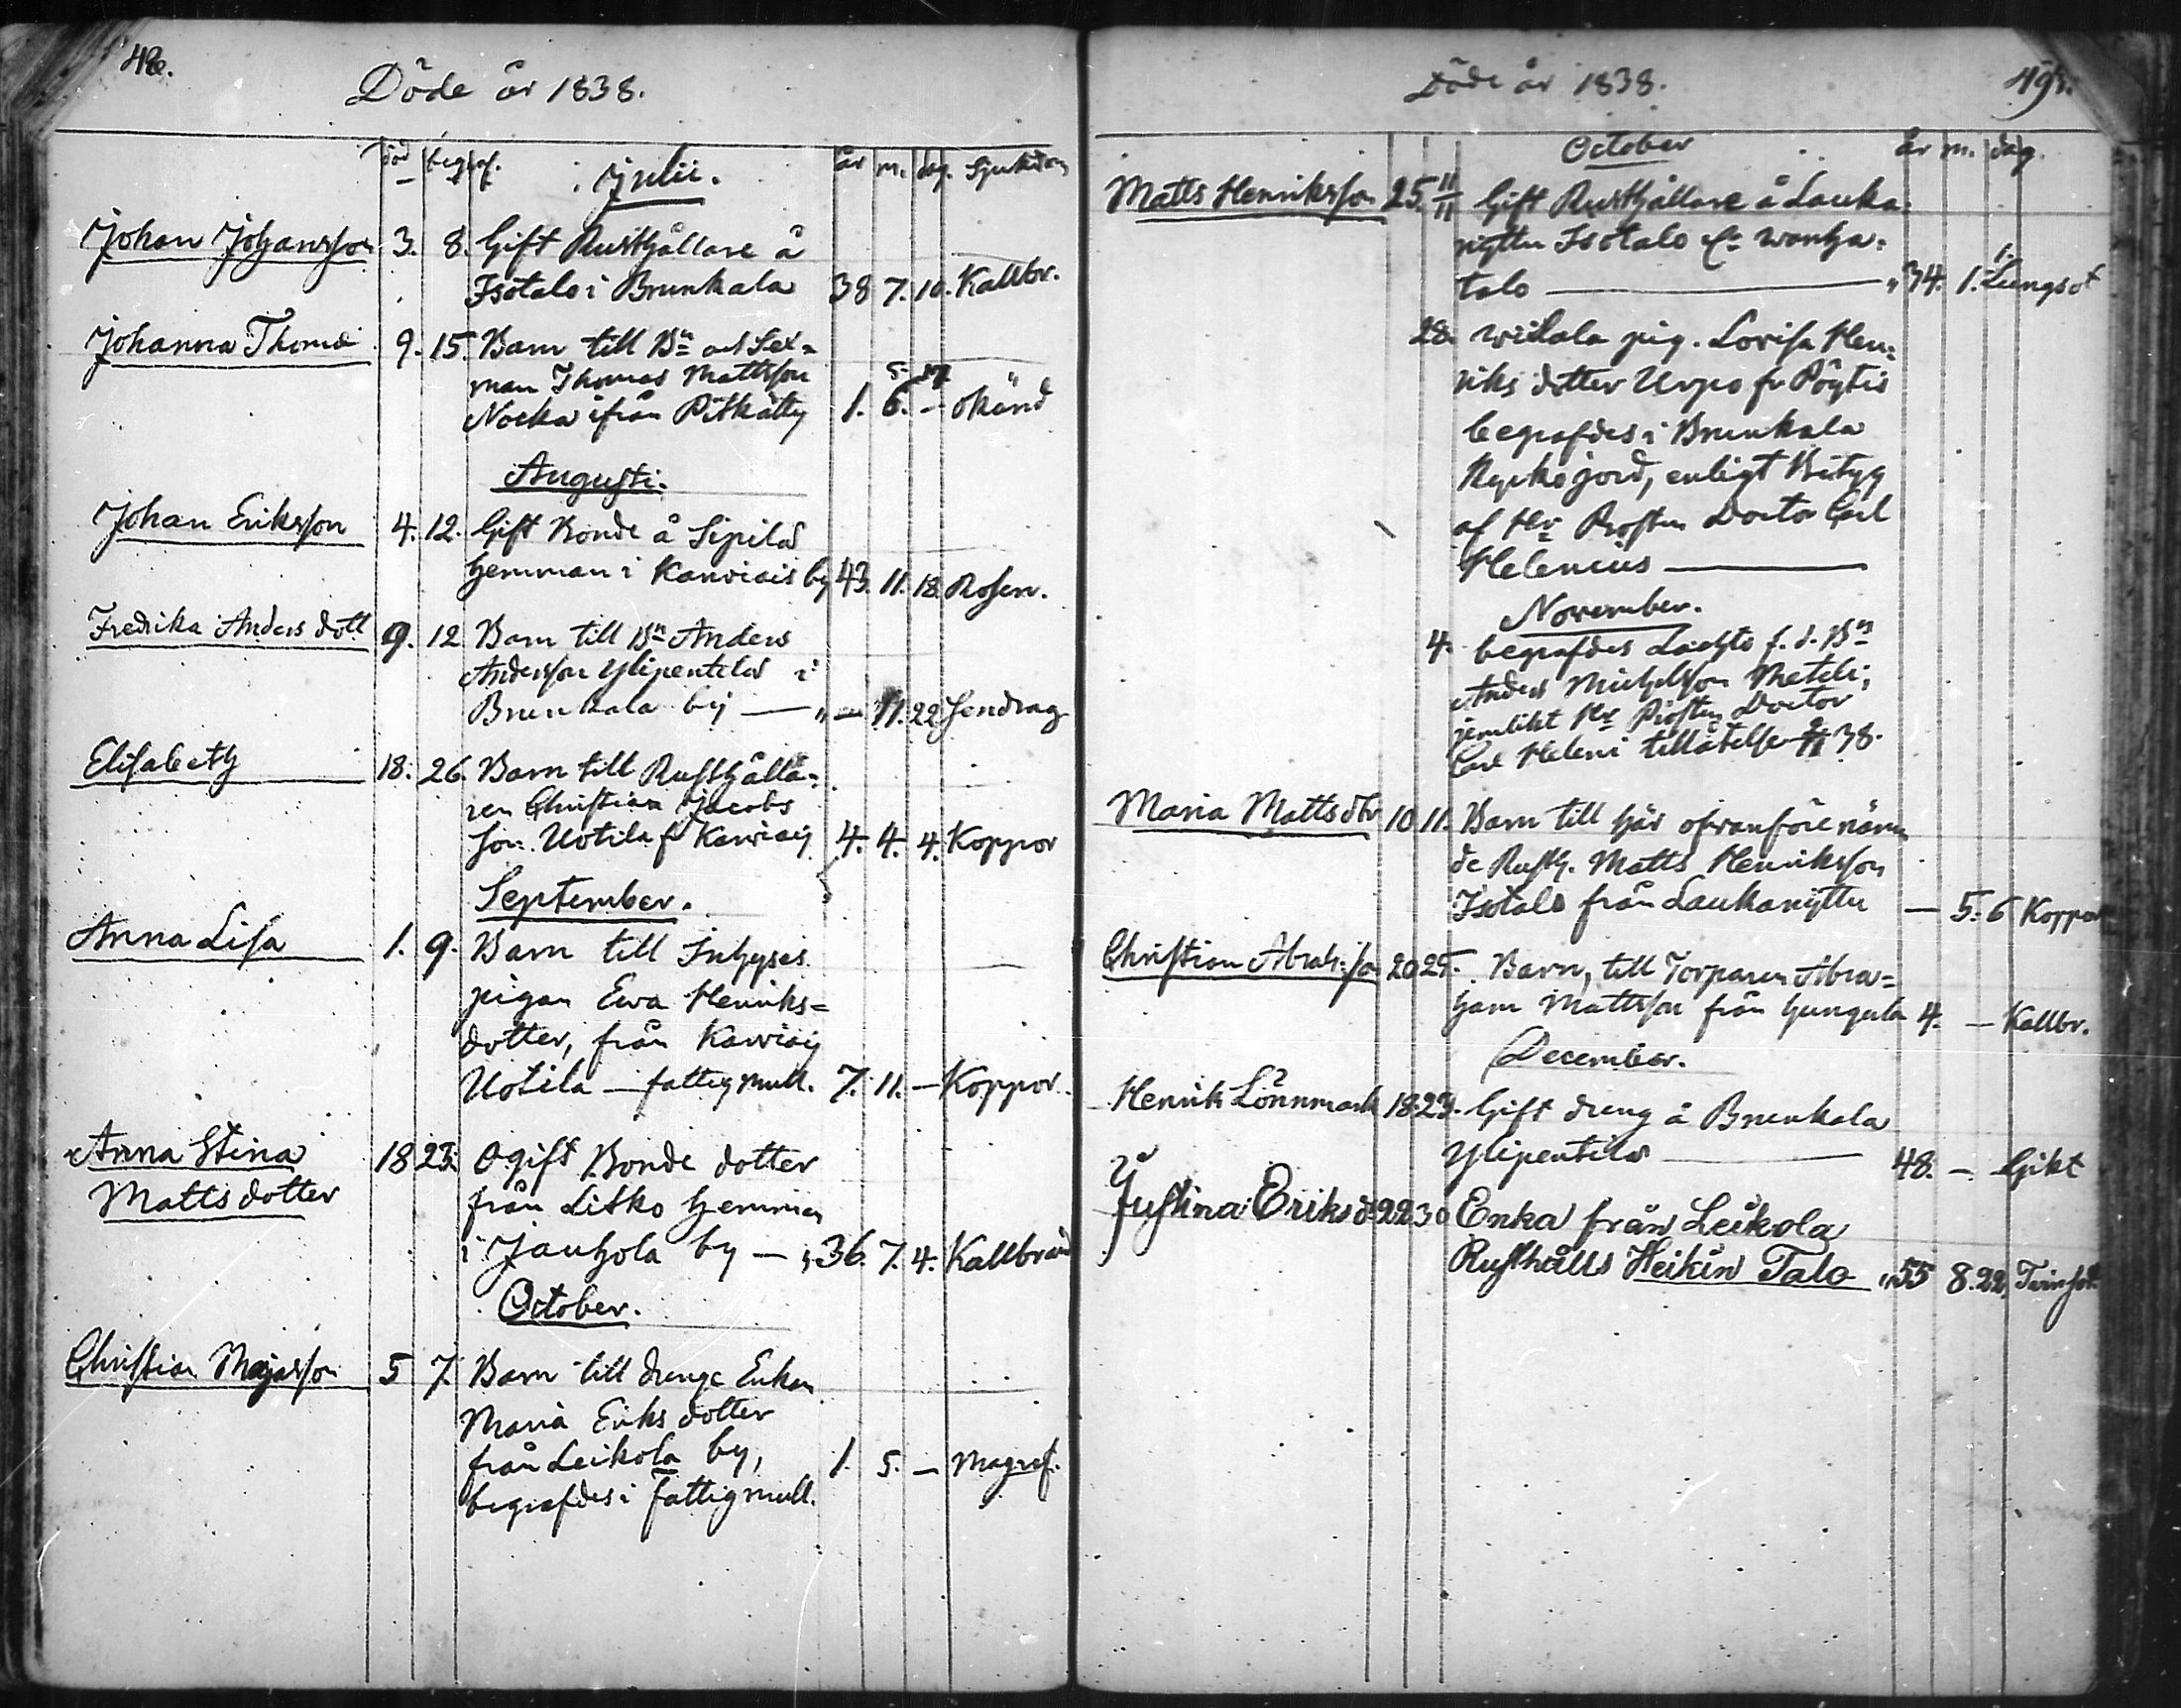 48.
Döde år 1838.
död begraf. Julii. år m. dag. Sjukdom
Johan Johansson 3. 8. Gift Rusthållare å
Isotalo i Brunkala 38 7. 10. Kallbr.
Johanna Thomæ 9. 15. Barn till Bn och Sex-
man Thomas Mattsson 5. 27.
Nocka ifrån Pitkäby 1. 6. — okänd
Augusti.
Johan Eriksson 4. 12. Gift Bonde å Sipilä
hemman i Karviais by 43. 11. 18. Rosen.
Fredrika Anders dott 9. 12 Barn till Bn Anders
Andersson Ylipentilä i
Brunkala by — „ — 11. 22 Sendrag
Elisabeth 18. 26. Barn till Rusthålla-
ren Christian Jacobs
son Uotila fr Karviais 4. 4. 4. Koppor
September.
Anna Lisa 1. 9. Barn till Inhyses
pigan Ewa Henriks-
dotter, från Karviais
Uotila — fattigmull. 7. 11. — Koppor.
Anna Stina 18 23. Ogift Bonde dotter
Matts dotter från Litko hemman
i Jauhola by — „ 36. 7. 4. Kallbrand
October.
Christian Majasson 5 7. Barn till drenge Enkan
Maria Eriks dotter
från Leikola by, 1. 5. — Magref.
begrafdes i fattigmull.
Döde år 1838. 49.
October år m. dag.
Matts Henriksson 25. 11/11 Gift Rusthållare å Lauka
nyttu Isotalo el. wanha- 1.
talo — „ 34. 1. Lungsot
28. wiilala pig. Lovisa Hen-
riks dotter Urpo fr Pöytis
begrafdes i Brunkala
Kyrkojord, enligt Betyg
af Hr Prosten Doctor Carl
Helenius —
November.
4. begrafdes Lachto f. d. Bn
Anders Michelsson Meteli,
jemlikt Hr Prosten Doctor
Carl Heleni tillåtelse 2/11 38.
Maria Matts dtr 10 11. Barn till här ofvanföre nämn
de Rusth. Matts Henriksson
Isotalo från Laukanyttu — 5. 6 Koppor
Christian Abrah:son 20 25. Barn, till Torparen Abra-
ham Mattsson från hungula 4. — Kallbr.
December.
Henrik Lönnmark 18. 23. Gift dreng å Brunkala
Ylipentilä — 48. — Gikt
Justina Eriks d. 22 30 Enka från Leikola
Rusthålls Heikin Talo „ 55 8. 22. Tvinsot